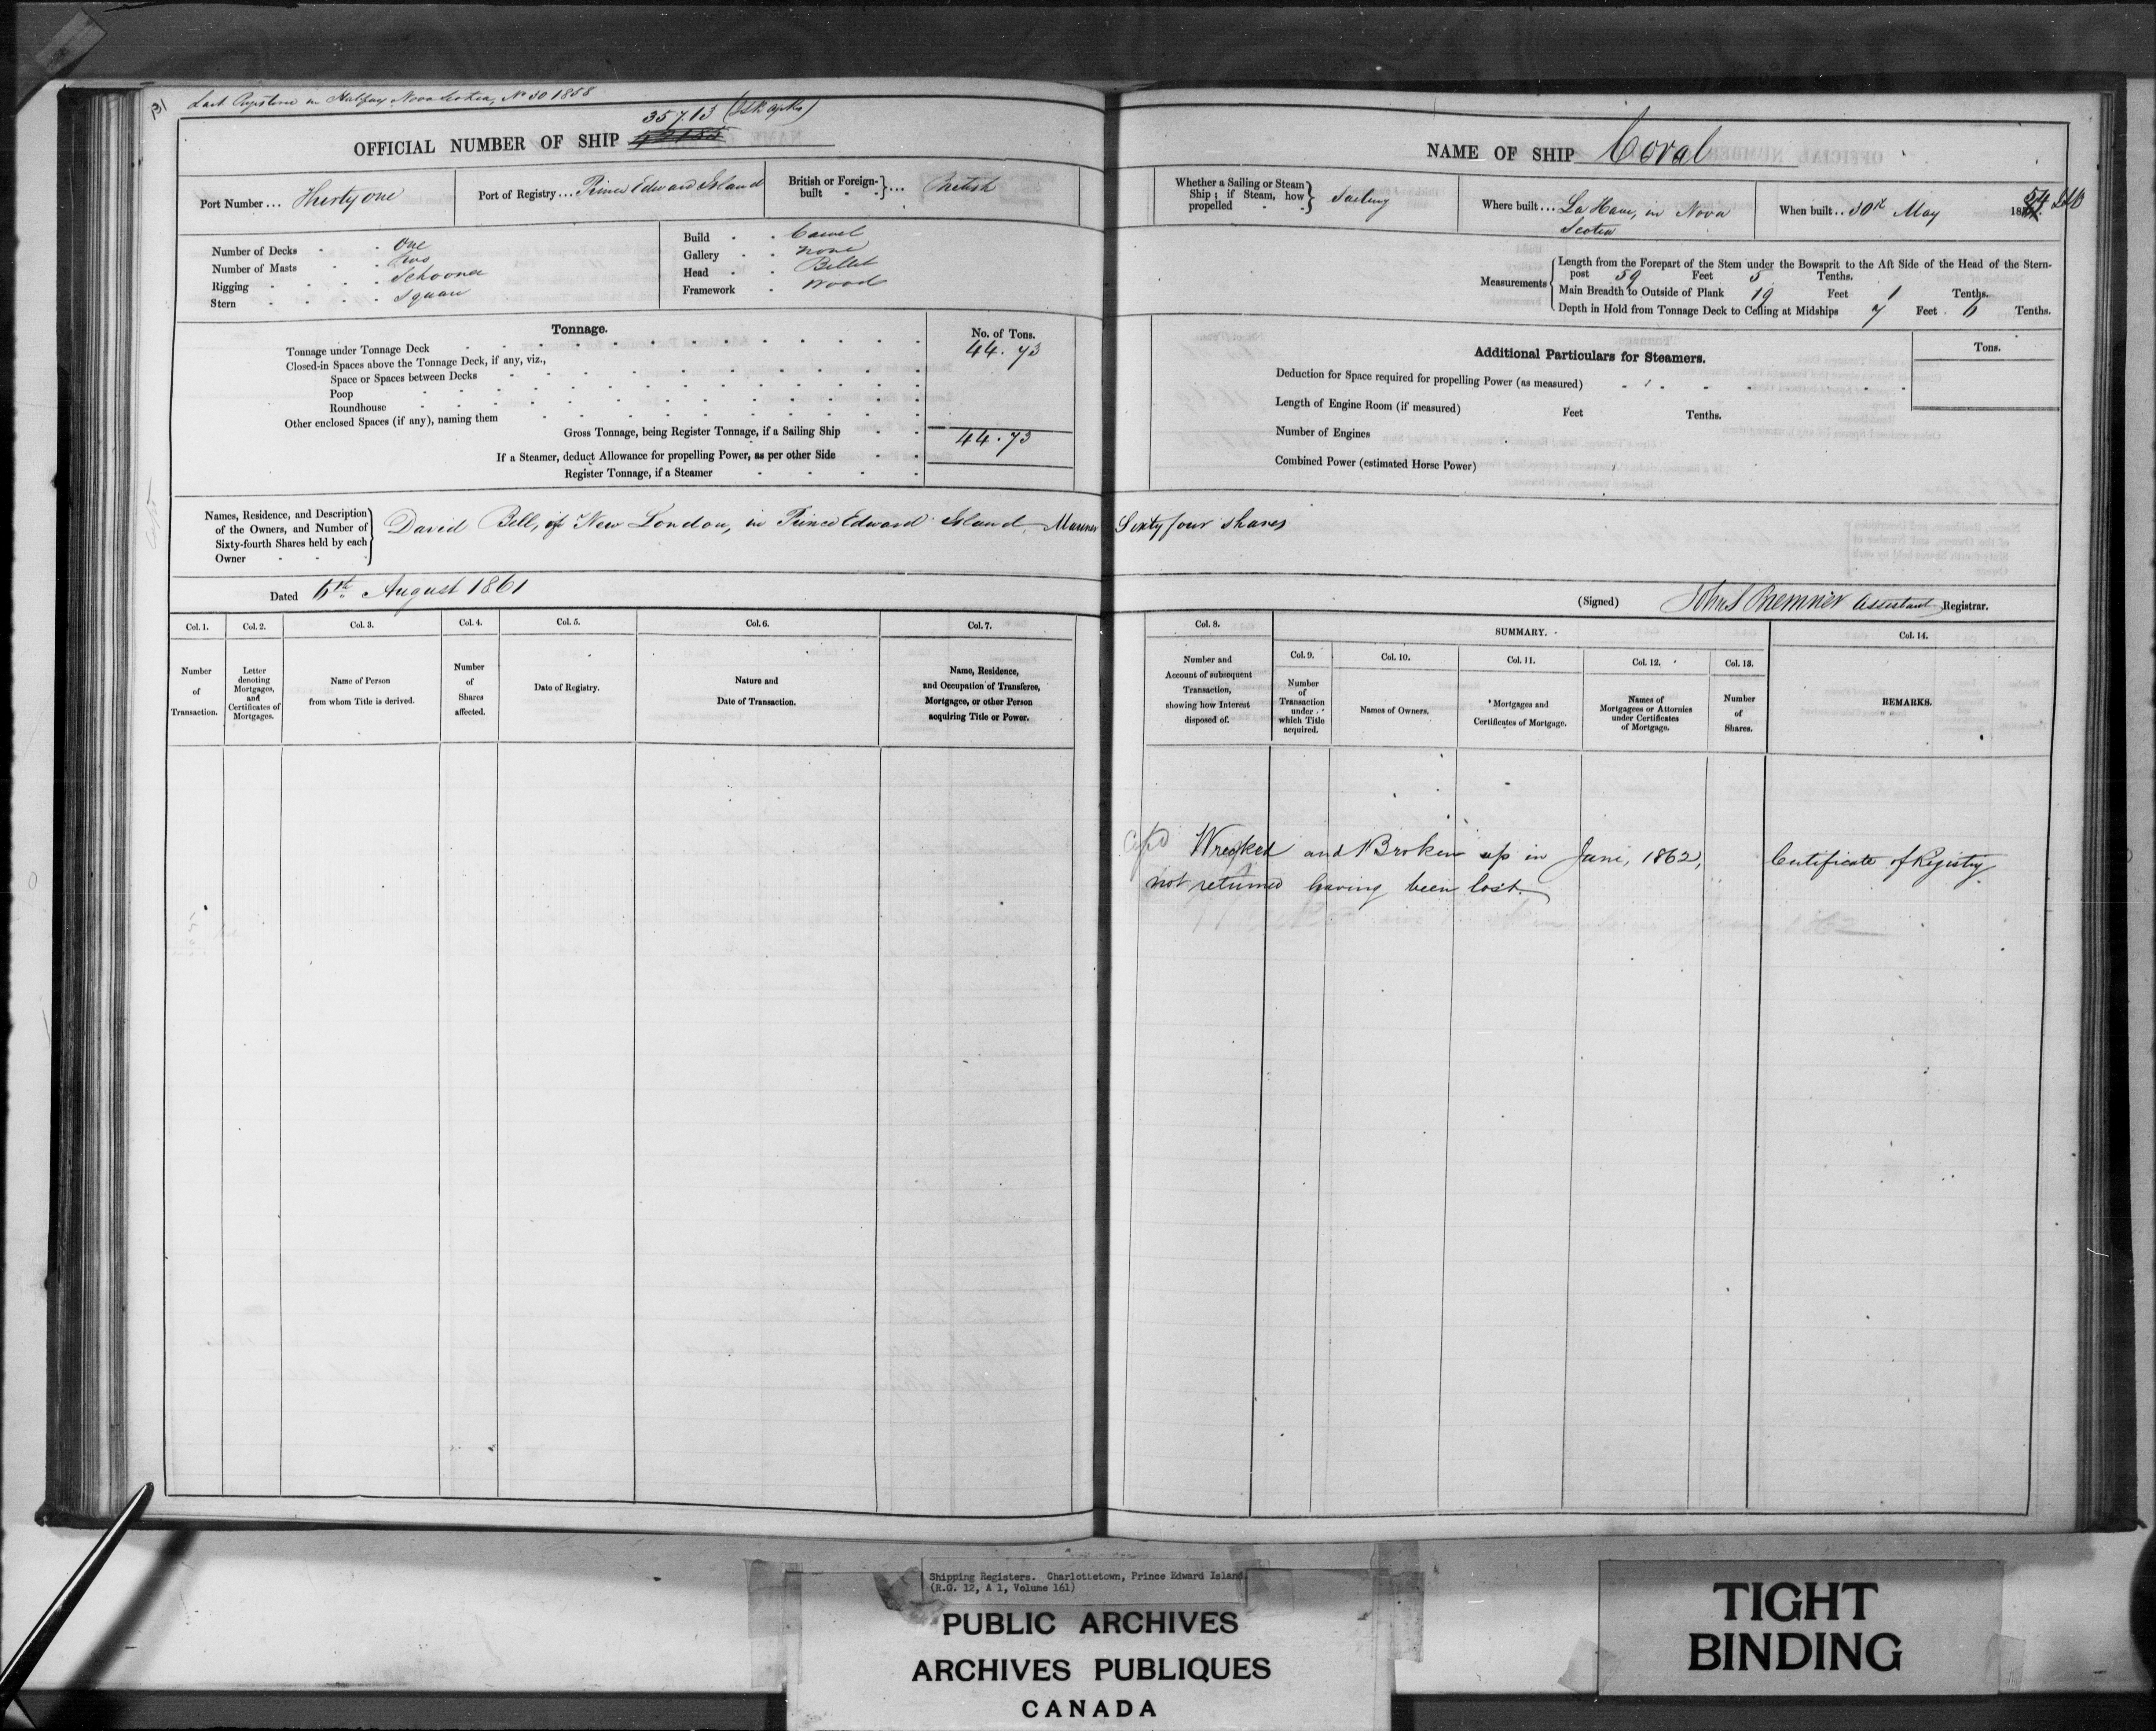 31
Last Register in Halifax Nova Scotia, No 30 1858
35713
OFFICIAL NUMBER OF SHIP 42185
Port Number ... Thirty one
Port of Registry ... Prince Edward Island
British or Foreign-built ... British
Number of Decks One
Number of Masts Two
Rigging Schooner
Stern Square
Build Carvel
Gallery None
Head Billet
Framework Wood
Tonnage.
No. of Tons.
Tonnage under Tonnage Deck 44.73
Closed-in Spaces above the Tonnage Deck, if any, viz.,
Space or Spaces between Decks
Poop
Roundhouse
Other enclosed Spaces (if any), naming them
Gross Tonnage, being Register Tonnage, if a Sailing Ship 44.73
If a Steamer, deduct Allowance for propelling Power, as per other Side
Register Tonnage, if a Steamer
Names, Residence, and Description
of the Owners, and Number of
Sixty-fourth Shares held by each
Owner
David Bell, of New London, in Prince Edward Island, Mariner Sixty four shares
Dated 6th August 1861
Col. 1.
Number
of
Transaction.
Col. 2.
Letter
denoting
Mortgages,
and
Certificates of
Mortgages.
Col. 3.
Name of Person
from whom Title is derived.
Col. 4.
Number
of
Shares
affected.
Col. 5.
Date of Registry.
Col. 6.
Nature and
Date of Transaction.
Col. 7.
Name, Residence,
and Occupation of Transferee,
Mortgagee, or other Person
acquiring Title or Power.
NAME OF SHIP Coral
Whether a Sailing or Steam
Ship; if Steam, how
propelled
Sailing
Where built ... La Have, in Nova
Scotia
When built .. 30th May 1854
Measurements
Length from the Forepart of the Stem under the Bowsprit to the Aft Side of the Head of the Stern-
post 59 Feet 5 Tenths.
Main Breadth to Outside of Plank 19 Feet 1 Tenths.
Depth in Hold from Tonnage Deck to Ceiling at Midships 7 Feet 6 Tenths.
Additional Particulars for Steamers.
Tons.
Deduction for Space required for propelling Power (as measured)
Length of Engine Room (if measured) Feet Tenths.
Number of Engines
Combined Power (estimated Horse Power)
(Signed) John S Bremner Assistant Registrar.
Col. 8.
Number and
Account of subsequent
Transaction,
showing how Interest
disposed of.
SUMMARY.
Col. 9.
Number
of
Transaction
under
which Title
acquired.
Col. 10.
Names of Owners.
Col. 11.
Mortgages and
Certificates of Mortgage.
Col. 12.
Names of
Mortgagees or Attornies
under Certificates
of Mortgage.
Col. 13.
Number
of
Shares.
Col. 14.
REMARKS.
Wrecked and Broken up in June, 1862, Certificate of Registry
not returned having been lost.
Shipping Registers. Charlottetown, Prince Edward Island.
(R.G. 12, A 1, Volume 161)
PUBLIC ARCHIVES
ARCHIVES PUBLIQUES
CANADA
TIGHT
BINDING